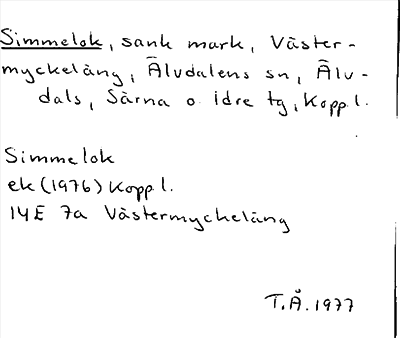 Simmelok, sank mark, Väster-
myckeläng, Älvdalens sn, Älv-
dals, Särna o. Idre tg, Kopp l.
Simmelok
ek (1976) Kopp l.
14E 7a Västermyckeläng
T.Å. 1977